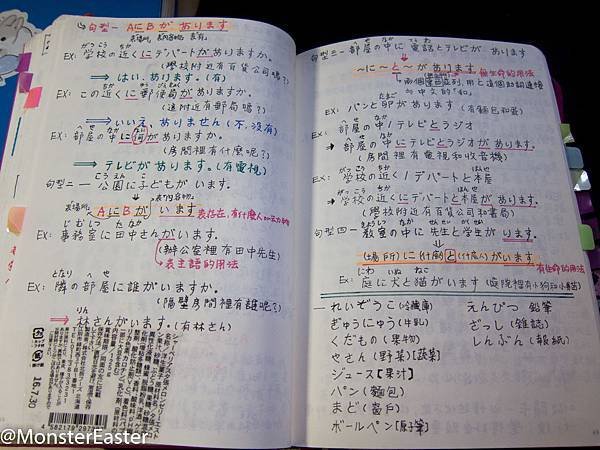 句型一 AにBが あります
表場所。表内容物。表有。
がっこう ちか
EX: 学校の近くにデパートがありますか。
(學校附近有百貨公司嗎?)
⇒ はい、あります。(有)
EX: この近くに郵便局がありますか。
(這附近有郵局嗎?)
⇒ いいえ、ありません(不,沒有)
へや なか なに
EX: 部屋の中に何がありますか。
(房間裡有什麼呢?)
⇒ テレビがあります。(有電視)
こうえん こ
句型二 — 公園に子どもが います。
表場所。表內容物。
AにBが います
じむしつ たなか
EX: 事務室に田中さんがいます。
(辦公室裡有田中先生)
→表主語的用法
となり へや だれ
EX: 隣の部屋に誰がいますか。
(隔壁房間裡有誰呢?)
りん
⇒ 林さんがいます。(有林さん)
15.7.30
句型三 — 部屋の中に 電話とテレビが あります
～に～と～が あります。
無生命的用法
たまご
EX: パンと卵があります(有麵包和蛋)
へや なか
EX: 部屋の中/テレビとラジオ
→ 部屋の中にテレビとラジオがあります。
(房間裡有電視和收音機)
がっこう ちか ほんや
EX: 学校の近く/デパートと本屋
→ 学校の近くにデパートと本屋があります。
(學校附近有百貨公司和書局)
句型四 — 教室の中に 先生と学生が います。
(場所)に(什麼)と(什麼)がいます
有生命的用法
にわ いぬ ねこ
EX: 庭に犬と猫がいます(庭院裡有小狗和小貓)
れいぞうこ(冷藏庫) えんぴつ 鉛筆
ぎゅうにゅう(牛乳) ざっし(雑誌)
くだもの(果物) しんぶん(報紙)
やさい(野菜)[蔬菜]
ジュース[果汁]
パン(麵包)
まど(窗戶)
ボールペン[原子筆]
@MonsterEaster